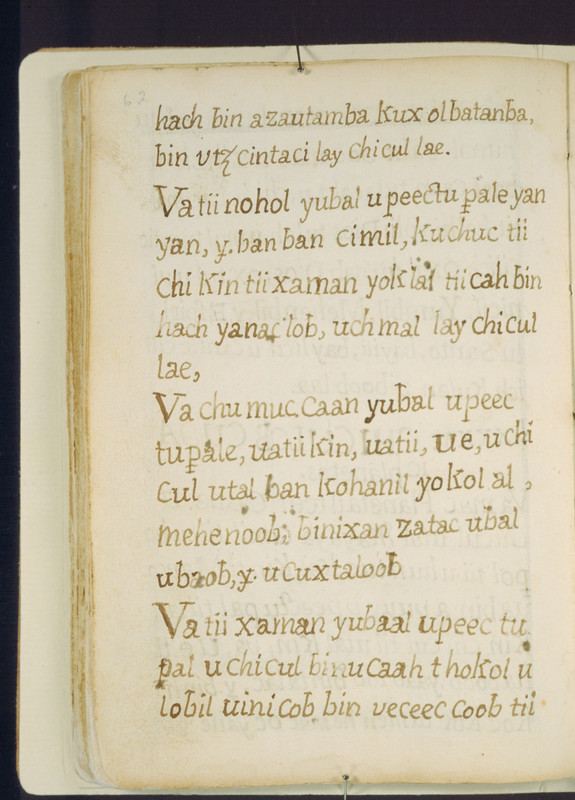 62
hach bin azautamba kux olbatanba,
bin utz cintaci lay chicul lae.
Va tii nohol yubal u peectu pale yan
yan, y. ban ban cimil, kuchuc tii
chi kin tii xaman yoklal tii cah bin
hach yanac lob, uchmal lay chicul
lae,
Va chumuc caan yubal upeec
tupale, uatii kin, uatii, ue, u chi
cul utal ban kohanil yokol al ,
mehenoob; binixan zatac ubal
ubaob, y. u cuxtaloob
Va tii xaman yubaal upeec tu
pal u chicul binu caah thokol u
lobil uinicob bin veceec coob tii